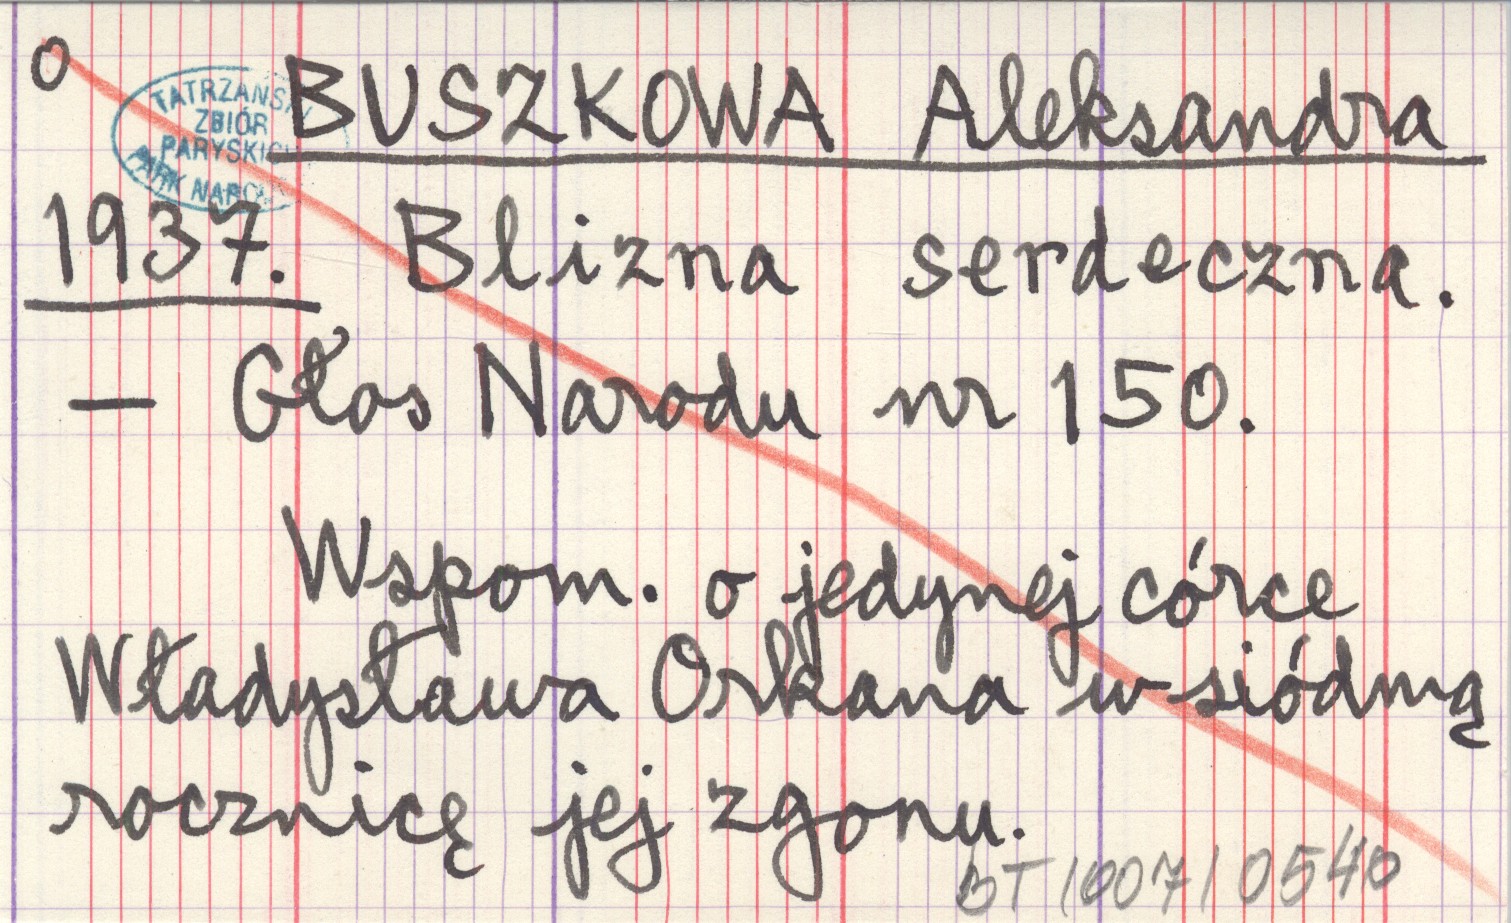 o BUSZKOWA Aleksandra
TATRZAŃSKI
ZBIÓR
PARYSKICH
PARK NAROD
1937. Blizna serdeczna.
— Głos Narodu nr 150.
Wspom. o jedynej córce
Władysława Orkana w siódmą
rocznicę jej zgonu.
BT/007/0540